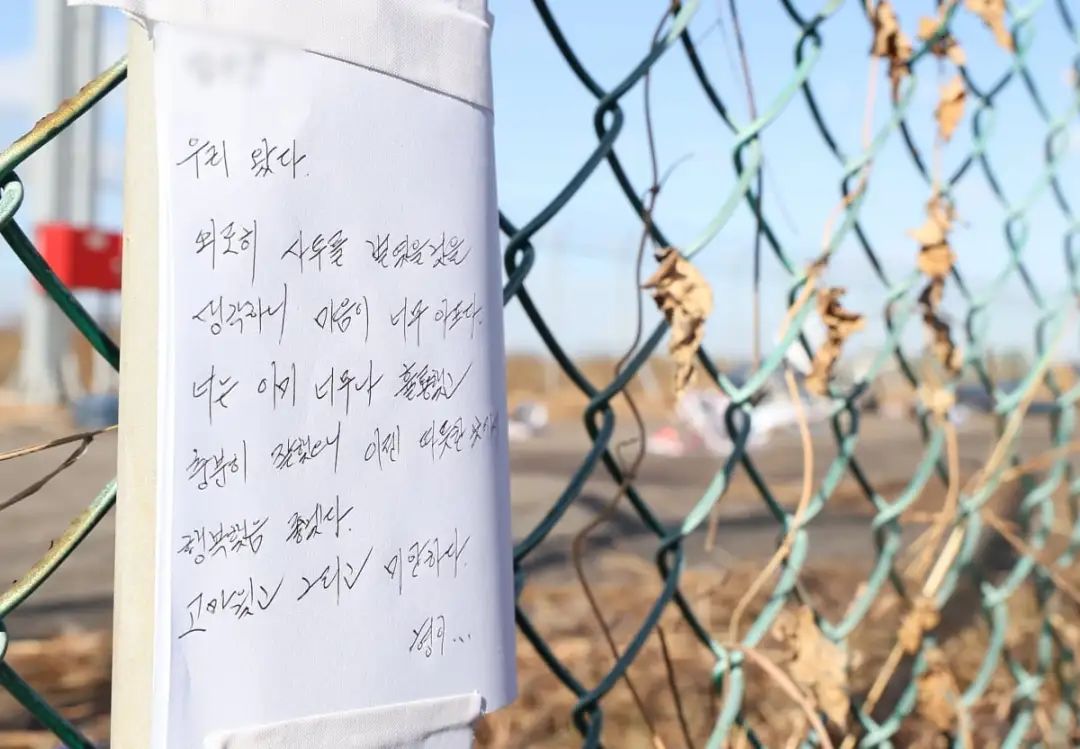 우리 왔다.
외로히 사투를 벌였을것을
생각하니 마음이 너무 아프다.
너는 이미 너무나 훌륭했고
충분히 잘했으니 이젠 따뜻한 곳에서
행복했음 좋겠다.
고마웠고 그리고 미안하다.
형이...